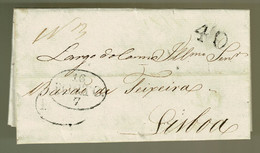 Nº 3
40
Largo do Carmo Illmo Snr
AGO
7
Barão de Teixeira
Lisboa